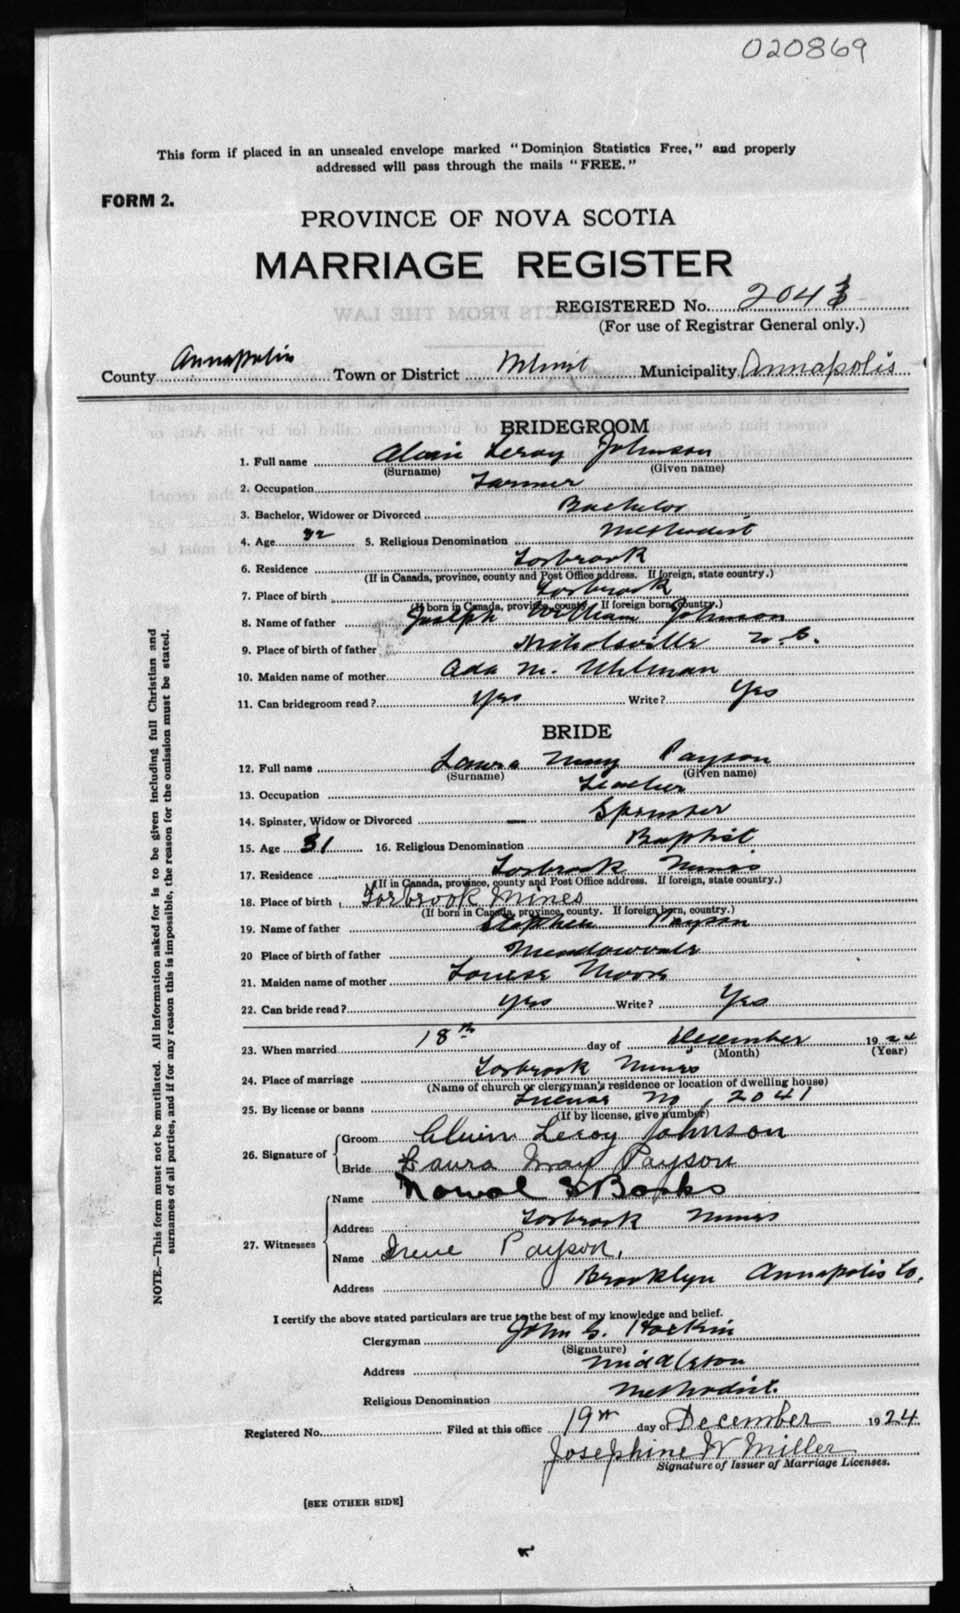 020869
This form if placed in an unsealed envelope marked "Dominion Statistics Free," and properly
addressed will pass through the mails "FREE."
FORM 2.
PROVINCE OF NOVA SCOTIA
MARRIAGE REGISTER
REGISTERED No. 2043
(For use of Registrar General only.)
County Annapolis Town or District Municipality Annapolis
BRIDEGROOM
1. Full name Alvin Leroy Johnson
(Surname) (Given name)
2. Occupation Farmer
3. Bachelor, Widower or Divorced Bachelor
4. Age 32 5. Religious Denomination Methodist
6. Residence Torbrook
(If in Canada, province, county and Post Office address. If foreign, state country.)
7. Place of birth Torbrook
(If born in Canada, province, county. If foreign born, country.)
8. Name of father Joseph William Johnson
9. Place of birth of father Nicholsville N.S.
10. Maiden name of mother Ada M. Uhlman
11. Can bridegroom read? Yes Write? Yes
BRIDE
12. Full name Laura May Payson
(Surname) (Given name)
13. Occupation Teacher
14. Spinster, Widow or Divorced Spinster
15. Age 31 16. Religious Denomination Baptist
17. Residence Torbrook Mines
(If in Canada, province, county and Post Office address. If foreign, state country.)
18. Place of birth Torbrook Mines
(If born in Canada, province, county. If foreign born, country.)
19. Name of father Stephen Payson
20 Place of birth of father Meadowvale
21. Maiden name of mother Louise Moore
22. Can bride read? Yes Write? Yes
23. When married 18th day of December 1924
(Month) (Year)
24. Place of marriage Torbrook Mines
(Name of church or clergyman's residence or location of dwelling house)
25. By license or banns License No. 2041
(If by license, give number)
26. Signature of
Groom Alvin Leroy Johnson
Bride Laura May Payson
27. Witnesses
Name Banks
Address Torbrook Mines
Name Irene Payson.
Address Brooklyn Annapolis Co.
I certify the above stated particulars are true to the best of my knowledge and belief.
Clergyman John G. Hockin
(Signature)
Address Middleton
Religious Denomination Methodist.
Registered No. Filed at this office 19th day of December 1924
Josephine W Miller
Signature of Issuer of Marriage Licenses.
[SEE OTHER SIDE]
NOTE.—This form must not be mutilated. All information asked for is to be given including full Christian and
surnames of all parties, and if for any reason this is impossible, the reason for the omission must be stated.